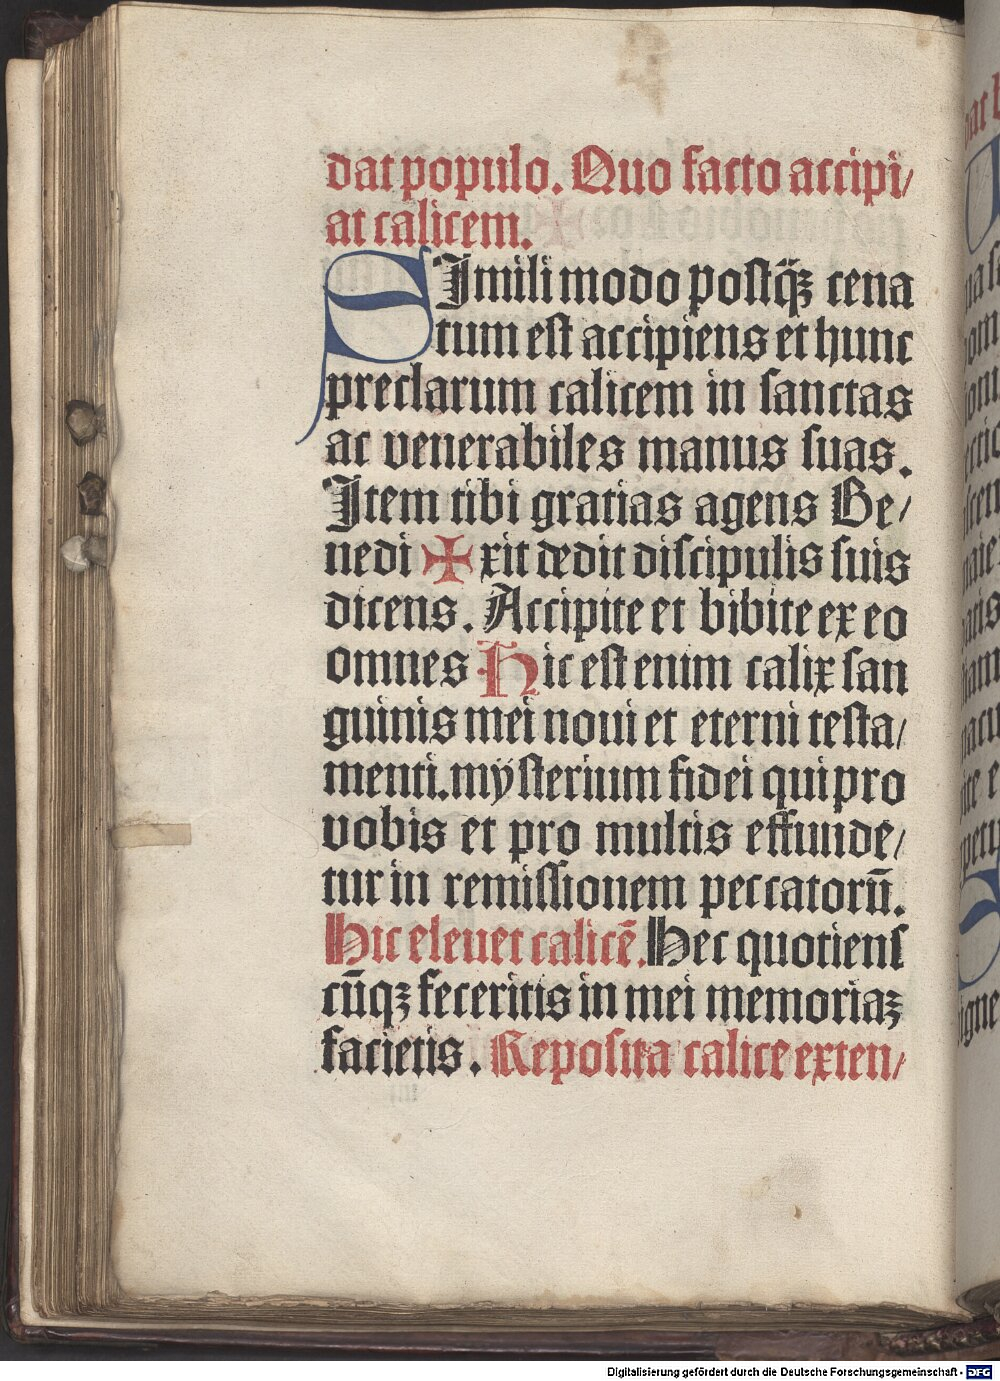 dat populo. Quo facto accipi/
at calicem.
SImili modo postq̃ꝫ cena
tum est accipiens et hunc
preclarum calicem in sanctas
ac venerabiles manus suas.
Item tibi gratias agens Be/
nedi ✠ xit dedit discipulis suis
dicens. Accipite et bibite ex eo
omnes Hic est enim calix san
guinis mei noui et eterni testa/
menti. mÿsterium fidei qui pro
vobis et pro multis effunde/
tur in remissionem peccatorū.
Hic eleuet calicē. Hec quotiens
cūqꝫ feceritis in mei memoriaꝫ
facietis. Reposita calice exten/
Digitalisierung gefördert durch die Deutsche Forschungsgemeinschaft - DFG